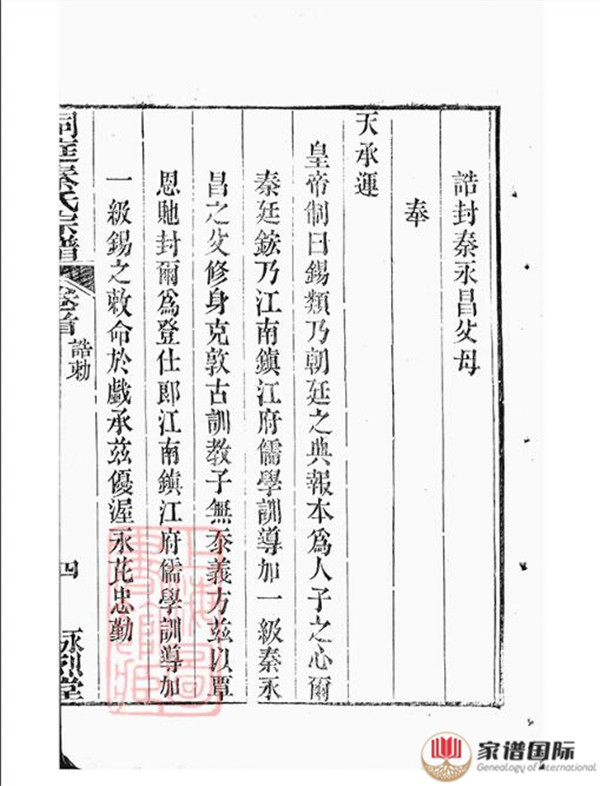 誥封秦永昌父母
奉
天承運
皇帝制曰錫類乃朝廷之典報本爲人子之心爾
秦廷鋐乃江南鎮江府儒學訓導加一級秦永
昌之父修身克敦古訓教子無忝義方茲以覃
恩馳封爾爲登仕郎江南鎮江府儒學訓導加
一級錫之敕命於戲承茲優渥永芘忠勤
洞庭秦氏宗譜
卷首
誥勅
四
詠烈堂
家谱国际
Genealogy of International